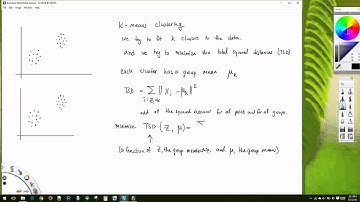 K-means clustering
we try to fit k clusters to the data.
and we try to minimise the total squared distances (TSD)
each cluster has a group mean μk
TSD = Σ || xi - μk ||²
i: zi=k
add all the squared distances for all points and for all groups.
minimise TSD (z, μ) =
(a function of z, the group membership, and μ, the group means)